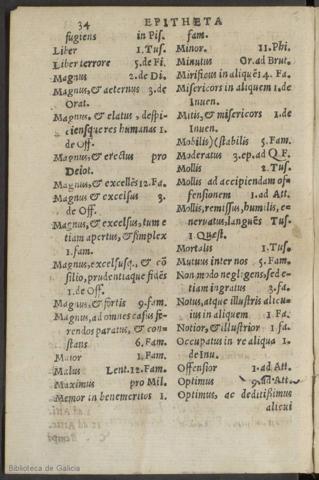 34
EPITHETA
fugiens in Pis.
Liber 1. Tus.
Liber terrore 5. de Fi.
Magnus 2. de Di.
Magnus, & aeternus 3. de
Orat.
Magnus, & elatus, despi-
ciensque res humanas 1.
de Off.
Magnus, & erectus pro
Deiot.
Magnus, & excellēs 12. Fa.
Magnus, & excelsus 3.
de Off.
Magnus, & excelsus, tum e
tiam apertus, & simplex
1. fam.
Magnus, excelsusq., & cō
silio, prudentiaque fidēs
1. de Off.
Magnus, & fortis 9. fam.
Magnus, ad omnes casus fe-
rendos paratus, & con-
stans 6. Fam.
Maior 1. Fam.
Malus Lent. 12. Fam.
Maximus pro Mil.
Memor in benemeritos 1.
fam.
Minor. 11. Phi.
Minutus Or. ad Brut.
Mirificus in aliquē 14. Fa.
Misericors in aliquem 1. de
Inuen.
Mitis, & misericors 1. de
Inuen.
Mobilis) (stabilis 5. Fam.
Moderatus 3. ep. ad Q. F.
Mollis 2. Tus.
Mollis ad accipiendam of-
fensionem 1. ad Att.
Mollis, remissus, humilis, e-
neruatus, languēs Tus.
1 Quest.
Mortalis 1. Tus.
Mutuus inter nos 5. Fam.
Non modo negligens, sed e-
tiam ingratus 3. fa.
Notus, atque illustris alicu-
ius in aliquem 1 Fa.
Notior, & illustrior 1. fa.
Occupatus in re aliqua 1.
de Inu.
Offensior 1. ad Att.
Optimus 9. ad Att.
Optimus, ac deditissimus
alicui
Biblioteca de Galicia